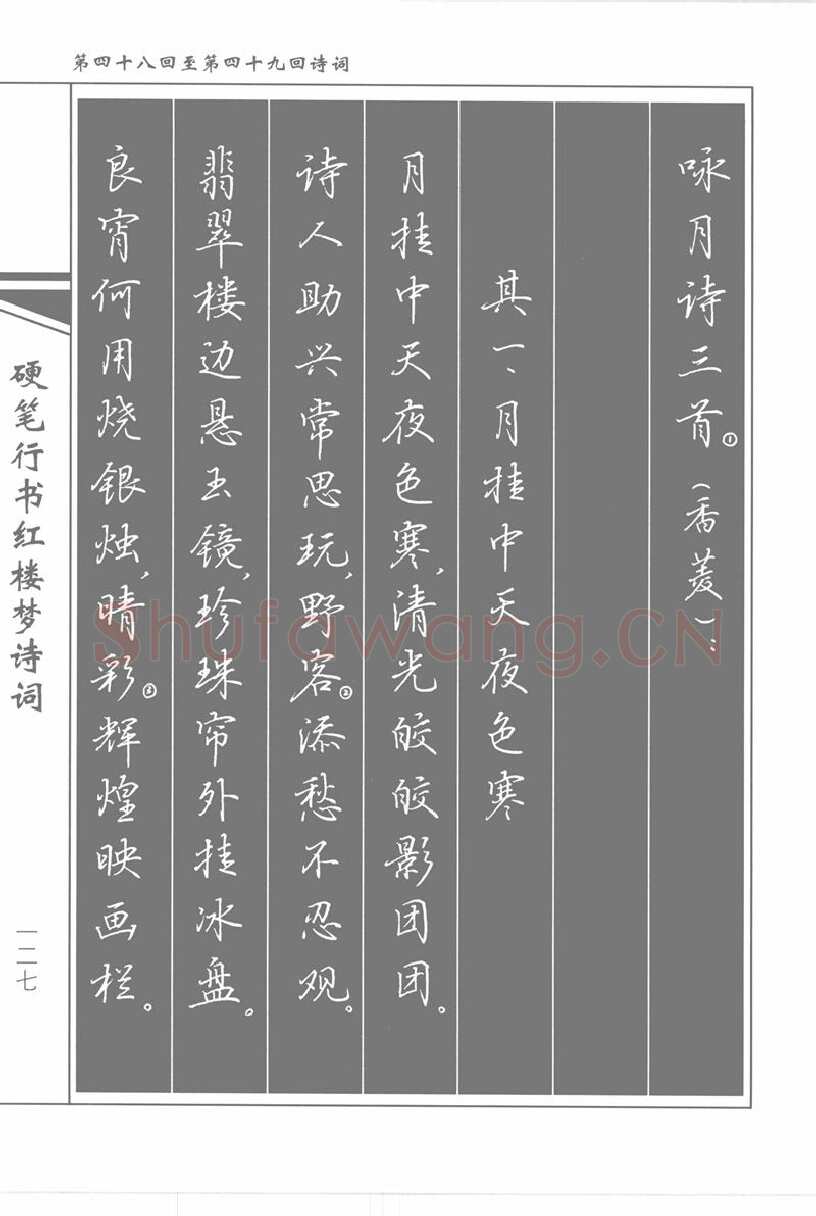 第四十八回至第四十九回诗词
咏月诗三首①（香菱）：
其一、月挂中天夜色寒
月挂中天夜色寒，清光皎皎影团团。
诗人助兴常思玩，野客②添愁不忍观。
翡翠楼边悬玉镜，珍珠帘外挂冰盘。
良宵何用烧银烛，晴彩③辉煌映画栏。
硬笔行书红楼梦诗词
一二七
Shufawang.CN